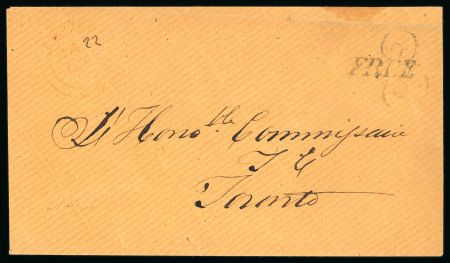 22
5
FREE
L'Hono.ble Commissaire
T C
Toronto